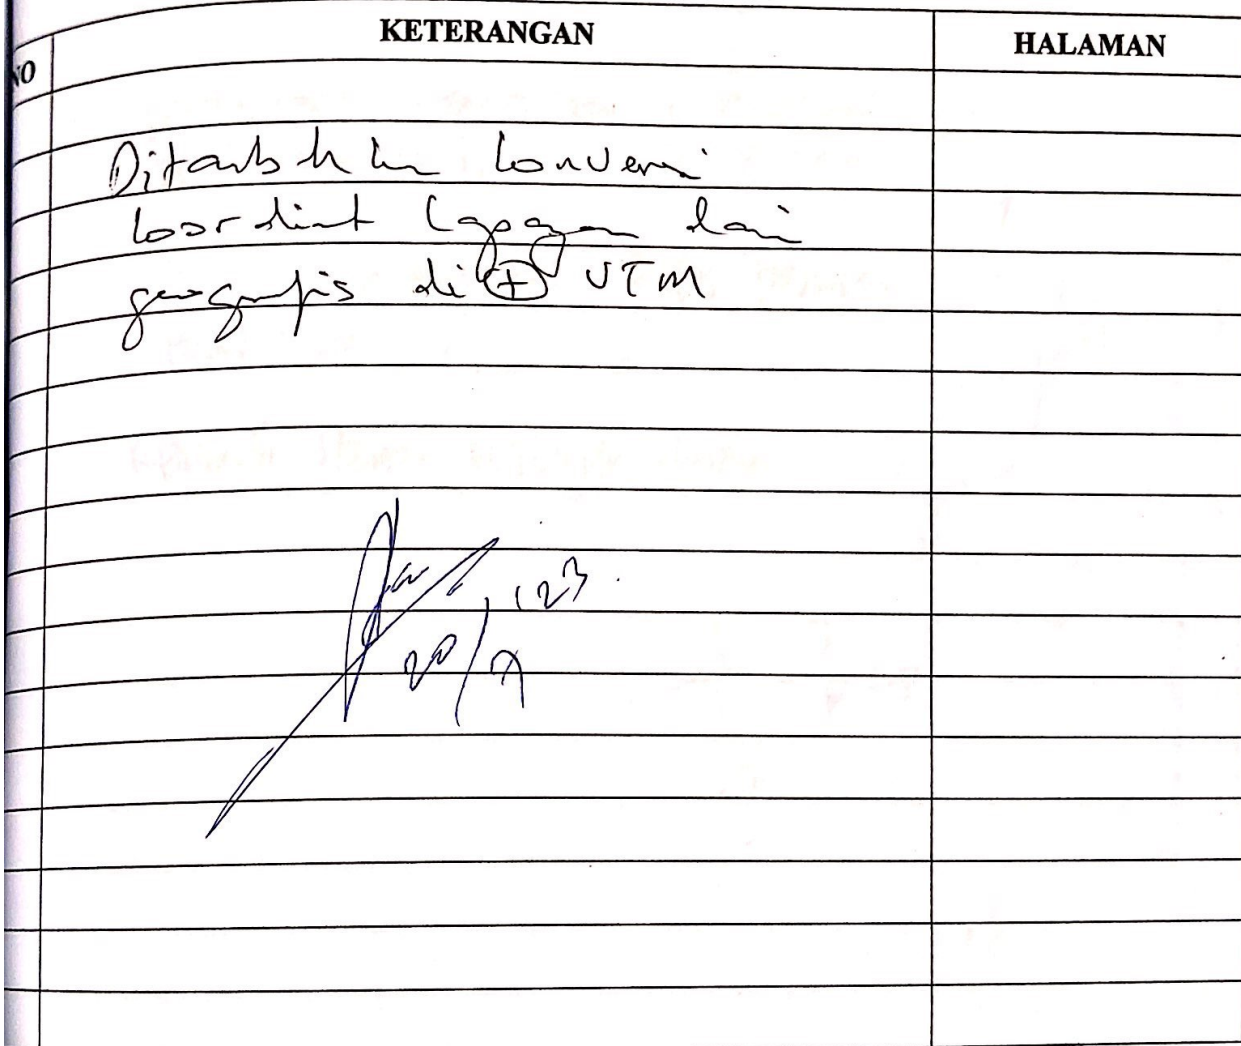 KETERANGAN
HALAMAN
NO
Ditambahkan konversi
koordinat lapangan dari
geografis di + UTM
20/7 '23